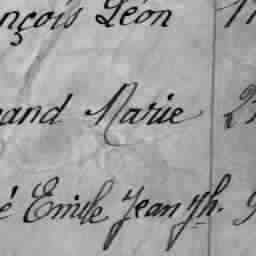 nçois Léon
and Marie 2
é Emile Jean Jh.